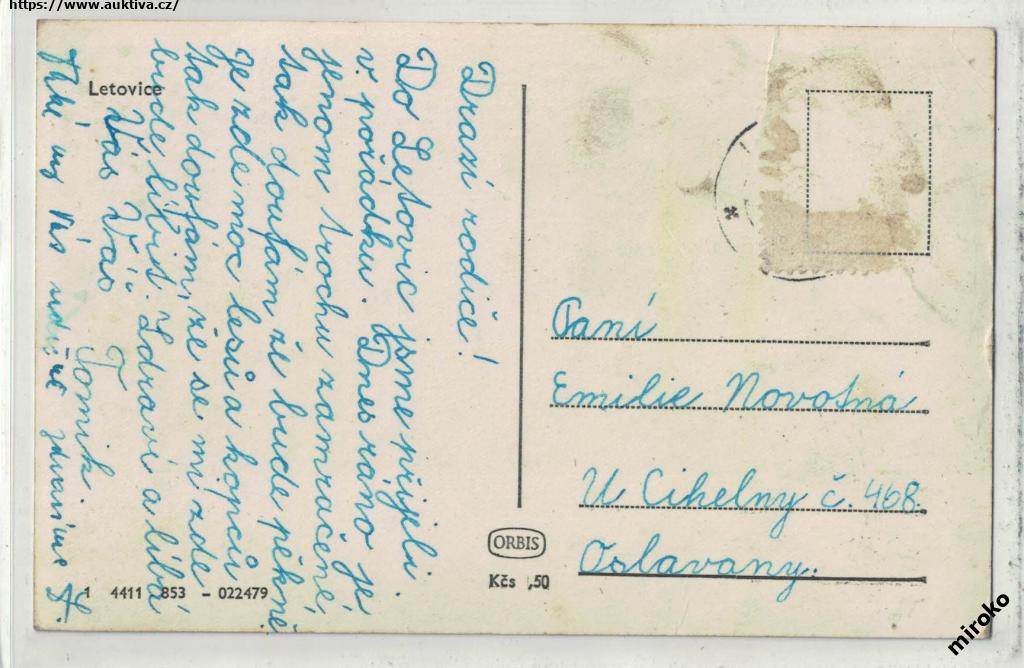 https://www.auktiva.cz/
Letovice
Drazí rodiče!
Do Letovic jsme přijeli
v pořádku. Dnes ráno je
jenom trochu zamračené,
tak doufám že bude pěkně
Je zde moc lesů a kopců
tak doufám, že se mi zde
bude líbit. Zdraví a líbá
Vás Váš
Tomík
Též my Vás
Paní
Emilie Novotná
U Cihelny č. 468.
Oslavany.
ORBIS
Kčs ,50
1 4411 853 - 022479
miroko